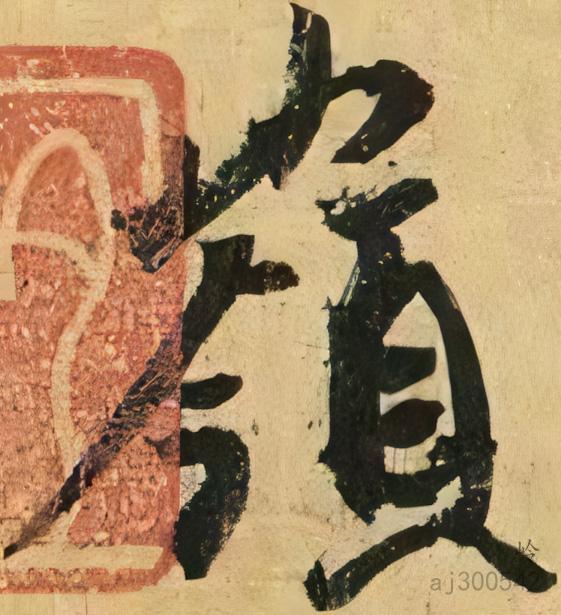 嶺
岭
aj300542